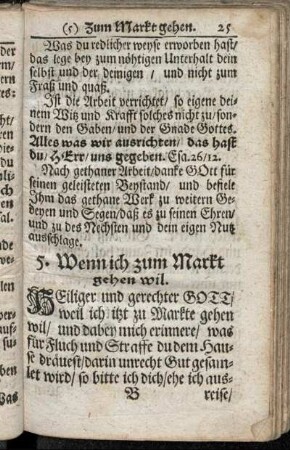 (5) Zum Markt gehen. 25
Was du redlicher weyse erworben hast/
das lege bey zum nöhtigen Unterhalt dein
selbst und der deinigen / und nicht zum
Fraß und quaß.
Ist die Arbeit verrichtet/ so eigene dei-
nem Witz und Krafft solches nicht zu/son-
dern den Gaben/und der Gnade Gottes.
Alles was wir ausrichten/ das hast
du/HErr/uns gegeben. Esa.26/12.
Nach gethaner Arbeit/danke GOtt für
seinen geleisteten Beystand/ und befiele
Ihm das gethane Werk zu weitern Ge-
deyen und Segen/daß es zu seinen Ehren/
und zu des Nechsten und dein eigen Nutz
ausschlage.
5. Wenn ich zum Markt
gehen wil.
HEiliger und gerechter GOTT/
weil ich itzt zu Markte gehen
wil/ und dabey mich erinnere/ was
für Fluch und Straffe du dem Hau-
se dräuest/darin unrecht Gut gesam-
let wird/ so bitte ich dich/ehe ich aus-
B reise/